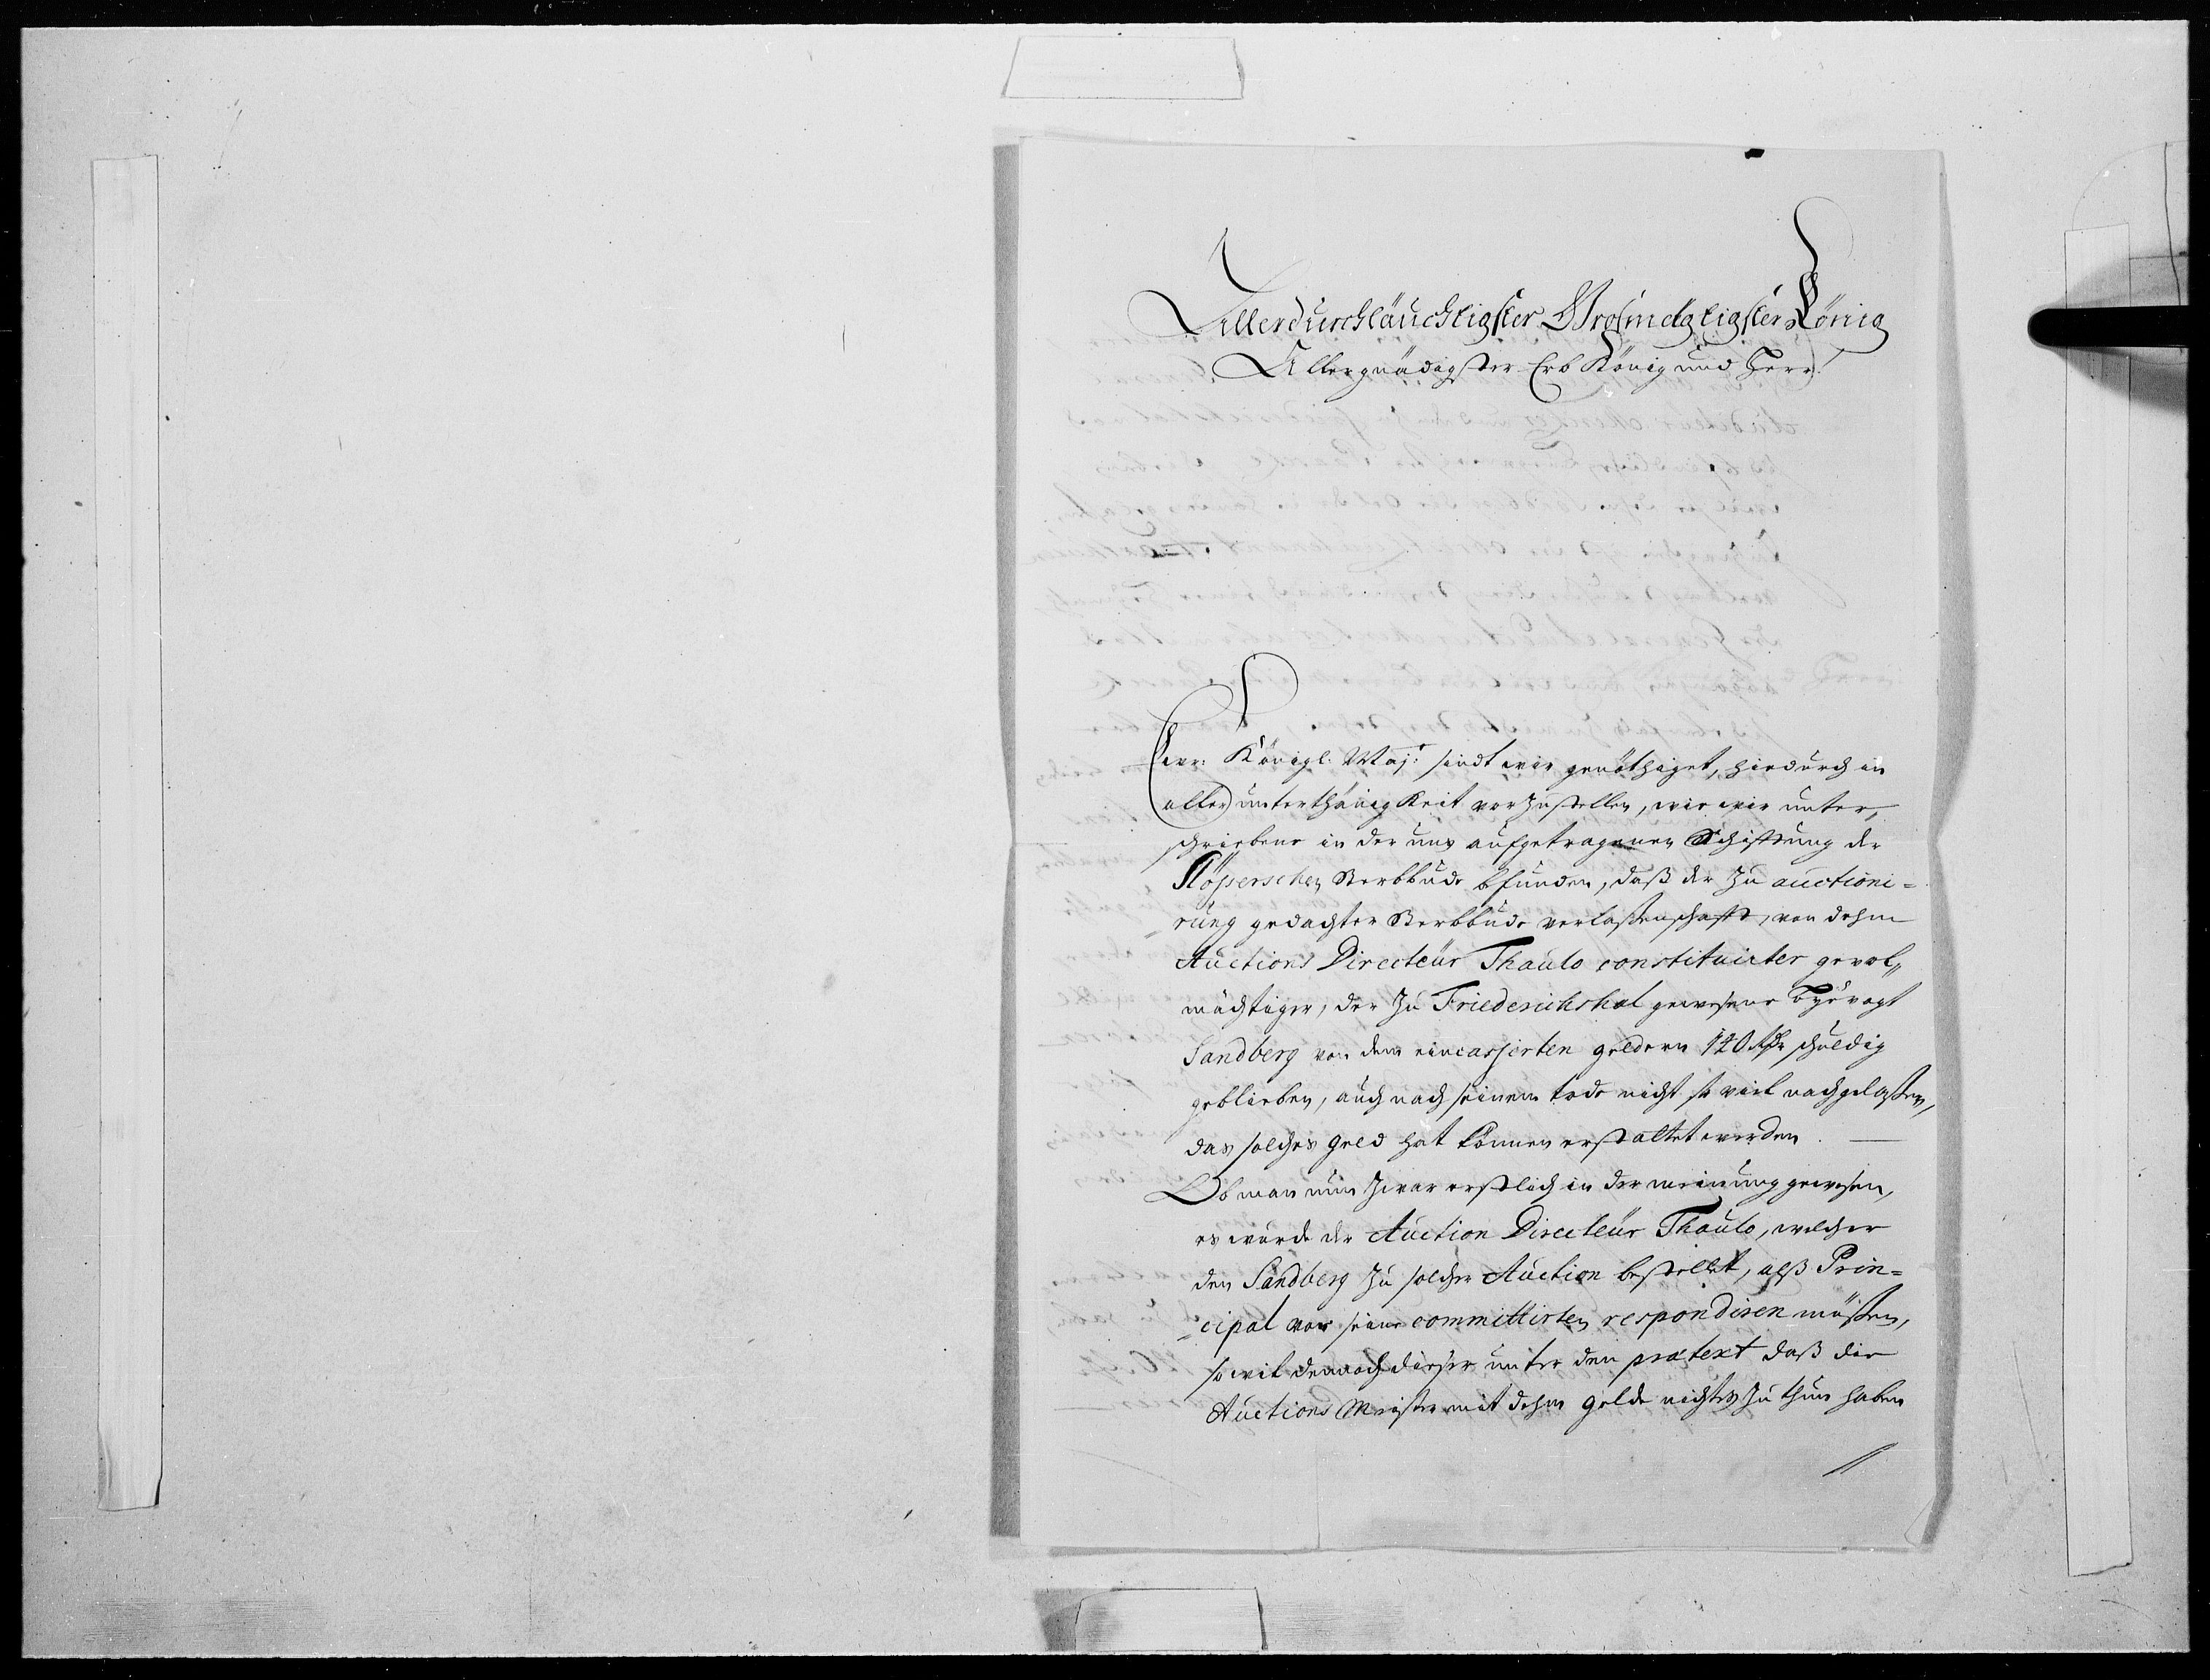 Allerdurchläuchtigster Grosmägtigster König
Allergnädigster Erb König und Herr!
Ewr: Königl. Maj: sindt wir genöthiget, hiedurch in
aller unterthänigkeit vorzustellen, wie wir unter,
schriebene in der uns aufgetragenen Schifftung der
Sterbbude befunden, daß der zu auctioni=
rung gedachter Sterbbude verlaßenschafft, von dehm
Auctions Directeur Thaulo constituirter gevol,,
mächtiger, der zu Friederichshal gewesene Byevogt
Sandberg von dem eincassierten geldern 120 Rdr schuldig
geblieben, auch nach seinem tode nicht so viel nachgelaßen,
das solches geld hat können erstattet werden. —
Ob man nun zwar erstlich in der meinung gewesen,
es würde der Auction Directeur Thaulo, welcher
den Sandberg zu solcher Auction bestellet, alß Prin=
cipal vor seine committirten respondiren müßen,
so wil dennoch dieser unter den prætext daß die
Auctions Meister mit dehm gelde nichts zu thun haben